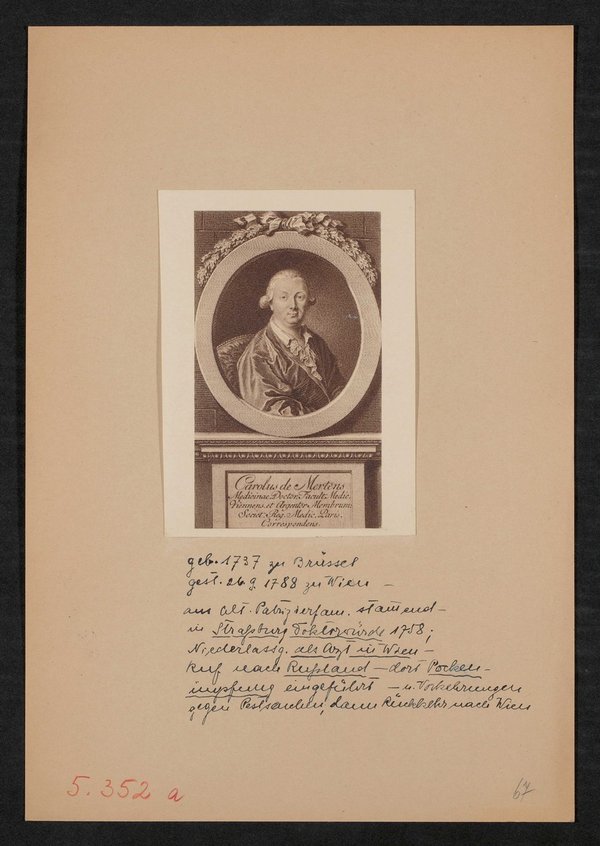 Carolus de Mertens
Medicinae Doctor, Facult. Medic.
Viennens. et Argentor. Membrum
Societ. Reg. Medic. Paris.
Correspondens.
geb. 1737 zu Brüssel
gest. 26 9 1788 zu Wien –
aus alt. Patrizierfam. stammend –
in Straßburg Doktorwürde 1758;
Niederlassg. als Arzt in Wien –
Ruf nach Rußland – dort Pocken-
impfung eingeführt – u. Vorkehrungen
gegen Pestseuchen, dann Rückkehr nach Wien
5. 352 a
67